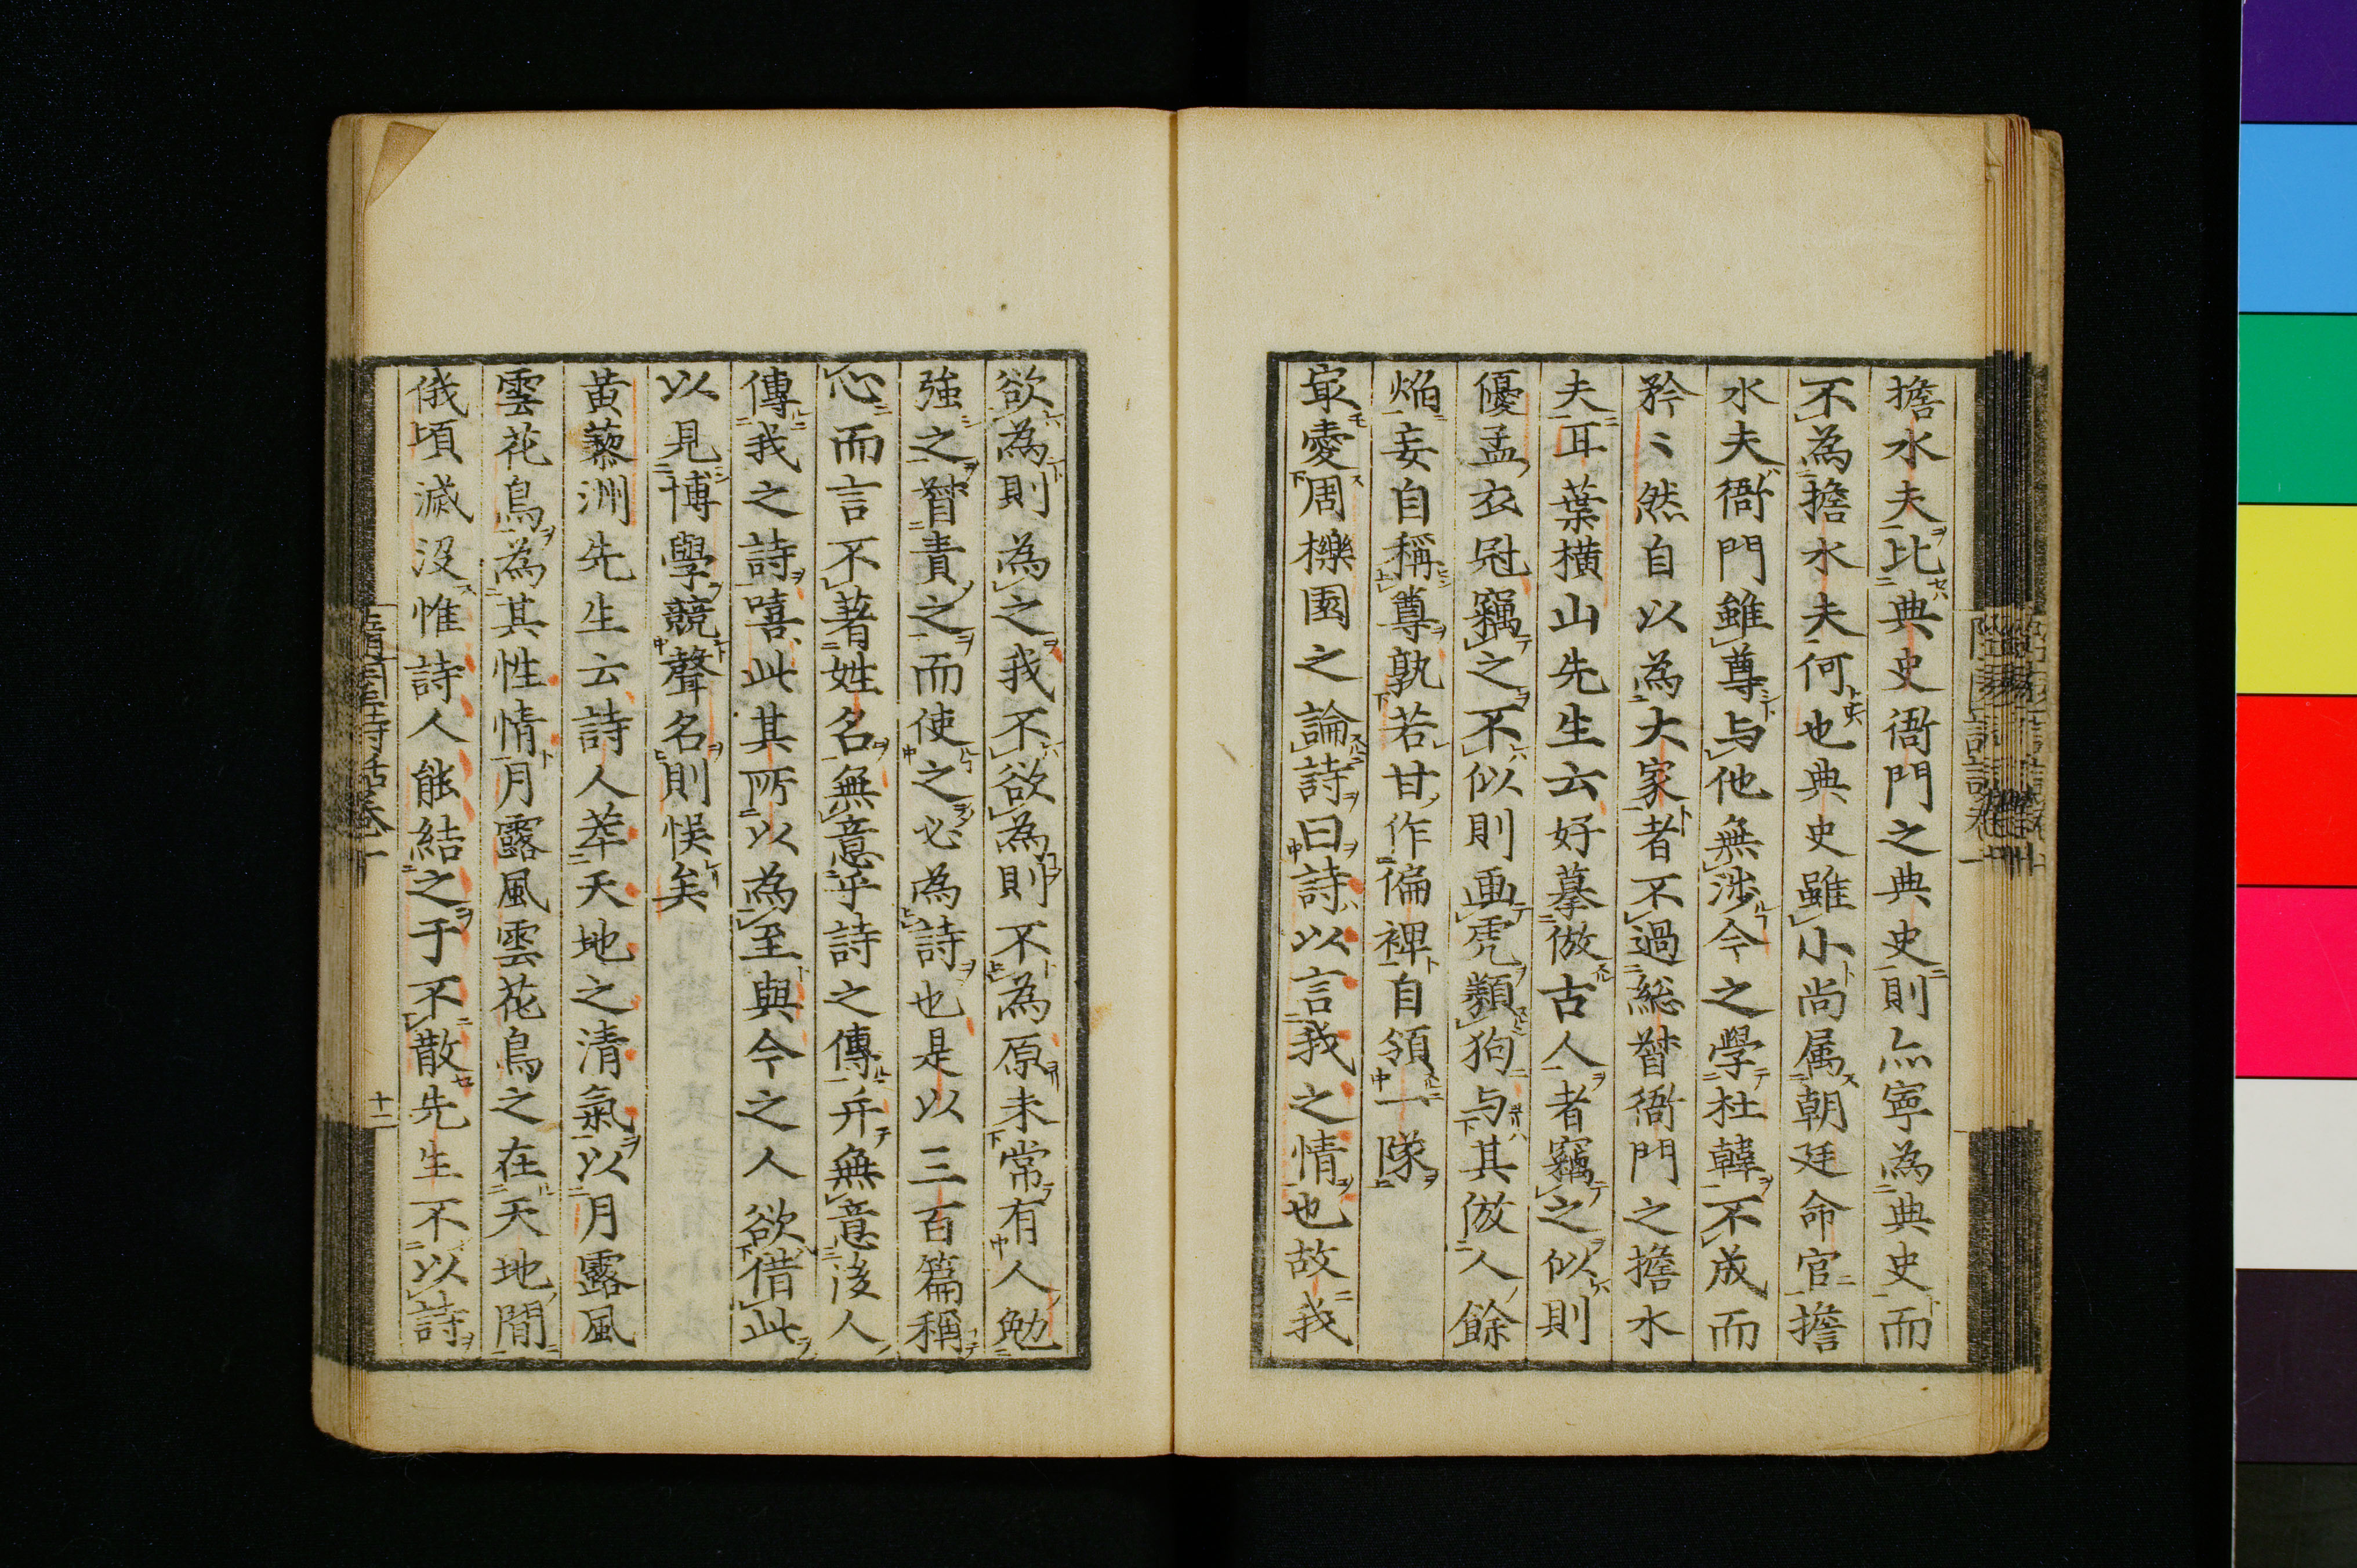 擔水夫比典史衙門之典史則亦寧為典史而
不為擔水夫何也典史雖小尚属朝廷命官擔
水夫衙門雖尊与他無渉今之學杜韓不成而
矜〻然自以為大家者不過総督衙門之擔水
夫耳葉横山先生云好摹倣古人者竊之似則
優孟衣冠竊之不似則画虎類狗与其倣人餘
焔妄自稱尊孰若甘作偏裨自領一隊
㝡愛周櫟園之論詩曰詩以言我之情也故我
欲為則為之我不欲為則不為原未常有人勉
強之督責之而使之必為詩也是以三百篇稱
心而言不著姓名無意乎詩之傳并無意後人
傳我之詩嘻此其所以為至與今之人欲借此
以見博學競聲名則悞矣
黄藜洲先生云詩人萃天地之清氣以月露風
雲花鳥為其性情月露風雲花鳥之在天地間
俄頃滅没惟詩人能結之于不散先生不以詩
十二